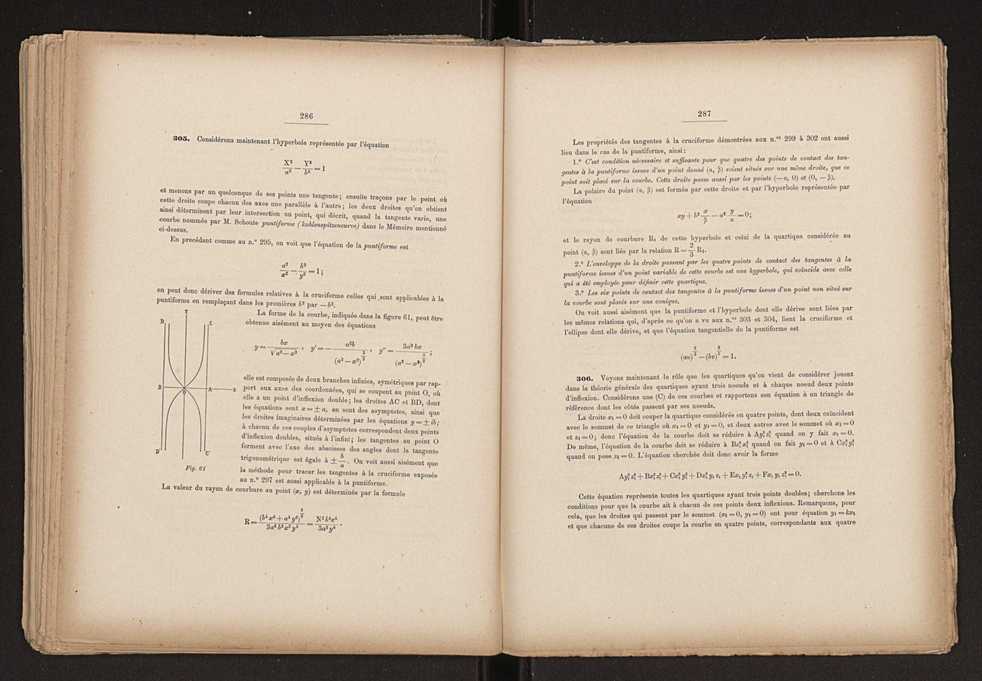 286
305. Considérons maintenant l'hyperbole représentée par l'équation
X²/a² − Y²/b² = 1
et menons par un quelconque de ses points une tangente; ensuite traçons par le point où
cette droite coupe chacun des axes une parallèle à l'autre; les deux droites qu'on obtient
ainsi déterminent par leur intersection un point, qui décrit, quand la tangente varie, une
courbe nommée par M. Schoute puntiforme (kohlenspitzencurve) dans le Mémoire mentionné
ci-dessus.
En procédant comme au n.º 295, on voit que l'équation de la puntiforme est
a²/x² − b²/y² = 1;
on peut donc dériver des formules relatives à la cruciforme celles qui sont applicables à la
puntiforme en remplaçant dans les premières b² par −b².
La forme de la courbe, indiquée dans la figure 61, peut être
obtenue aisément au moyen des équations
y = bx/√(a²−x²), y' = a²b/(a²−x²)^(3/2), y'' = 3a²bx/(a²−x²)^(5/2);
elle est composée de deux branches infinies, symétriques par rap-
port aux axes des coordonnées, qui se coupent au point O, où
elle a un point d'inflexion double; les droites AC et BD, dont
les équations sont x = ± a, en sont des asymptotes, ainsi que
les droites imaginaires déterminées par les équations y = ± ib;
à chacun de ces couples d'asymptotes correspondent deux points
d'inflexion doubles, situés à l'infini; les tangentes au point O
forment avec l'axe des abscisses des angles dont la tangente
trigonométrique est égale à ± b/a. On voit aussi aisément que
la méthode pour tracer les tangentes à la cruciforme exposée
au n.º 297 est aussi applicable à la puntiforme.
Fig. 61
La valeur du rayon de courbure au point (x, y) est déterminée par la formule
R = (b⁴x⁶ + a⁴y⁶)^(3/2)/3a⁴b⁴x³y⁴
287
Les propriétés des tangentes à la cruciforme démontrées aux n.ᵒˢ 299 à 302 ont aussi
lieu dans le cas de la puntiforme, ainsi:
1.º C'est condition nécessaire et suffisante pour que quatre des points de contact des tan-
gentes à la puntiforme issues d'un point donné (α, β) soient situés sur une même droite, que ce
point soit placé sur la courbe. Cette droite passe aussi par les points (−α, 0) et (0, −β).
La polaire du point (α, β) est formée par cette droite et par l'hyperbole représentée par
l'équation
xy + b² x/β − a² y/α = 0;
et le rayon de courbure R₁ de cette hyperbole et celui de la quartique considérée au
point (α, β) sont liés par la relation R = 2/3 R₁.
2.º L'enveloppe de la droite passant par les quatre points de contact des tangentes à la
puntiforme issues d'un point variable de cette courbe est une hyperbole, qui coïncide avec celle
qui a été employée pour définir cette quartique.
3.º Les six points de contact des tangentes à la puntiforme issues d'un point non situé sur
la courbe sont placés sur une conique.
On voit aussi aisément que la puntiforme et l'hyperbole dont elle dérive sont liées par
les mêmes relations qui, d'après ce qu'on a vu aux n.ᵒˢ 303 et 304, lient la cruciforme et
l'ellipse dont elle dérive, et que l'équation tangentielle de la puntiforme est
(au)^(2/3) − (bv)^(2/3) = 1.
306. Voyons maintenant le rôle que les quartiques qu'on vient de considérer jouent
dans la théorie générale des quartiques ayant trois noeuds et à chaque noeud deux points
d'inflexion. Considérons une (C) de ces courbes et rapportons son équation à un triangle de
référence dont les côtés passent par ses noeuds.
La droite x₁ = 0 doit couper la quartique considérée en quatre points, dont deux coïncident
avec le sommet de ce triangle où x₁ = 0 et y₁ = 0, et deux autres avec le sommet où x₁ = 0
et z₁ = 0; donc l'équation de la courbe doit se réduire à Ay₁²z₁² quand on y fait x₁ = 0.
De même, l'équation de la courbe doit se réduire à Bx₁²z₁² quand on fait y₁ = 0 et à Cx₁²y₁²
quand on pose z₁ = 0. L'équation cherchée doit donc avoir la forme
Ay₁²z₁² + Bx₁²z₁² + Cx₁²y₁² + Dx₁²y₁z₁ + Ex₁y₁²z₁ + Fx₁y₁z₁² = 0.
Cette équation représente toutes les quartiques ayant trois points doubles; cherchons les
conditions pour que la courbe ait à chacun de ces points deux inflexions. Remarquons, pour
cela, que les droites qui passent par le sommet (x₁ = 0, y₁ = 0) ont pour équation y₁ = kx₁
et que chacune de ces droites coupe la courbe en quatre points, correspondants aux quatre